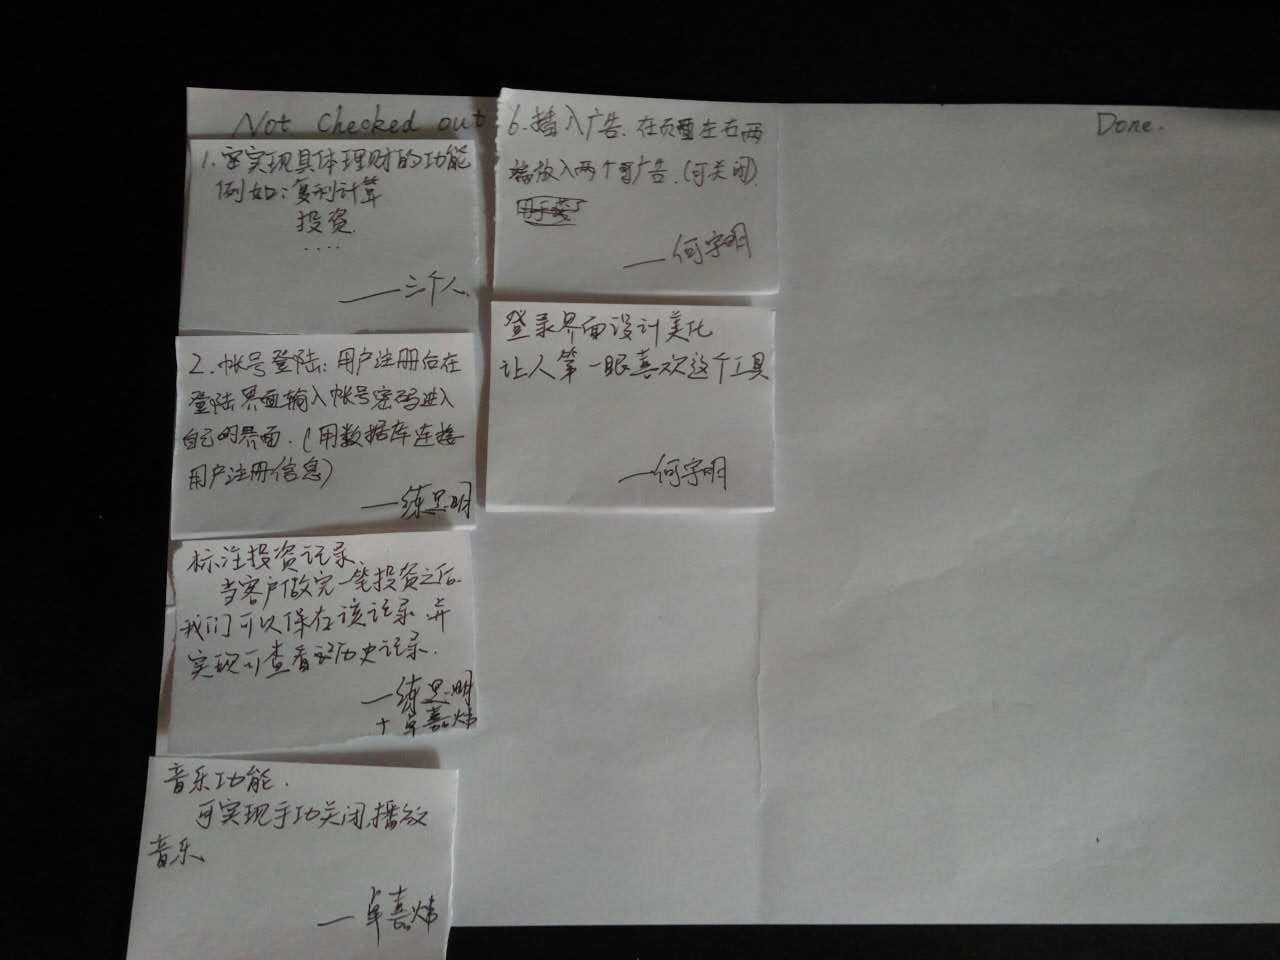 Not Checked out
1. 实现具体理财的功能
例如：复利计算
投资
....
——三个人
2. 帐号登陆：用户注册后在
登陆界面输入帐号密码进入
自己的界面.（用数据库连接
用户注册信息）
——练思明
标注投资记录、
当客户做完一笔投资之后
我们可以保存该记录.并
实现可查看该历史记录.
——练思明
+卓嘉炜
音乐功能.
可实现手动关闭.播放
音乐
——卓嘉炜
6. 插入广告. 在页面左右两
放入两个广告.（可关闭）.
——何宇明
登录界面设计美化
让人第一眼喜欢这个工具
——何宇明
Done.